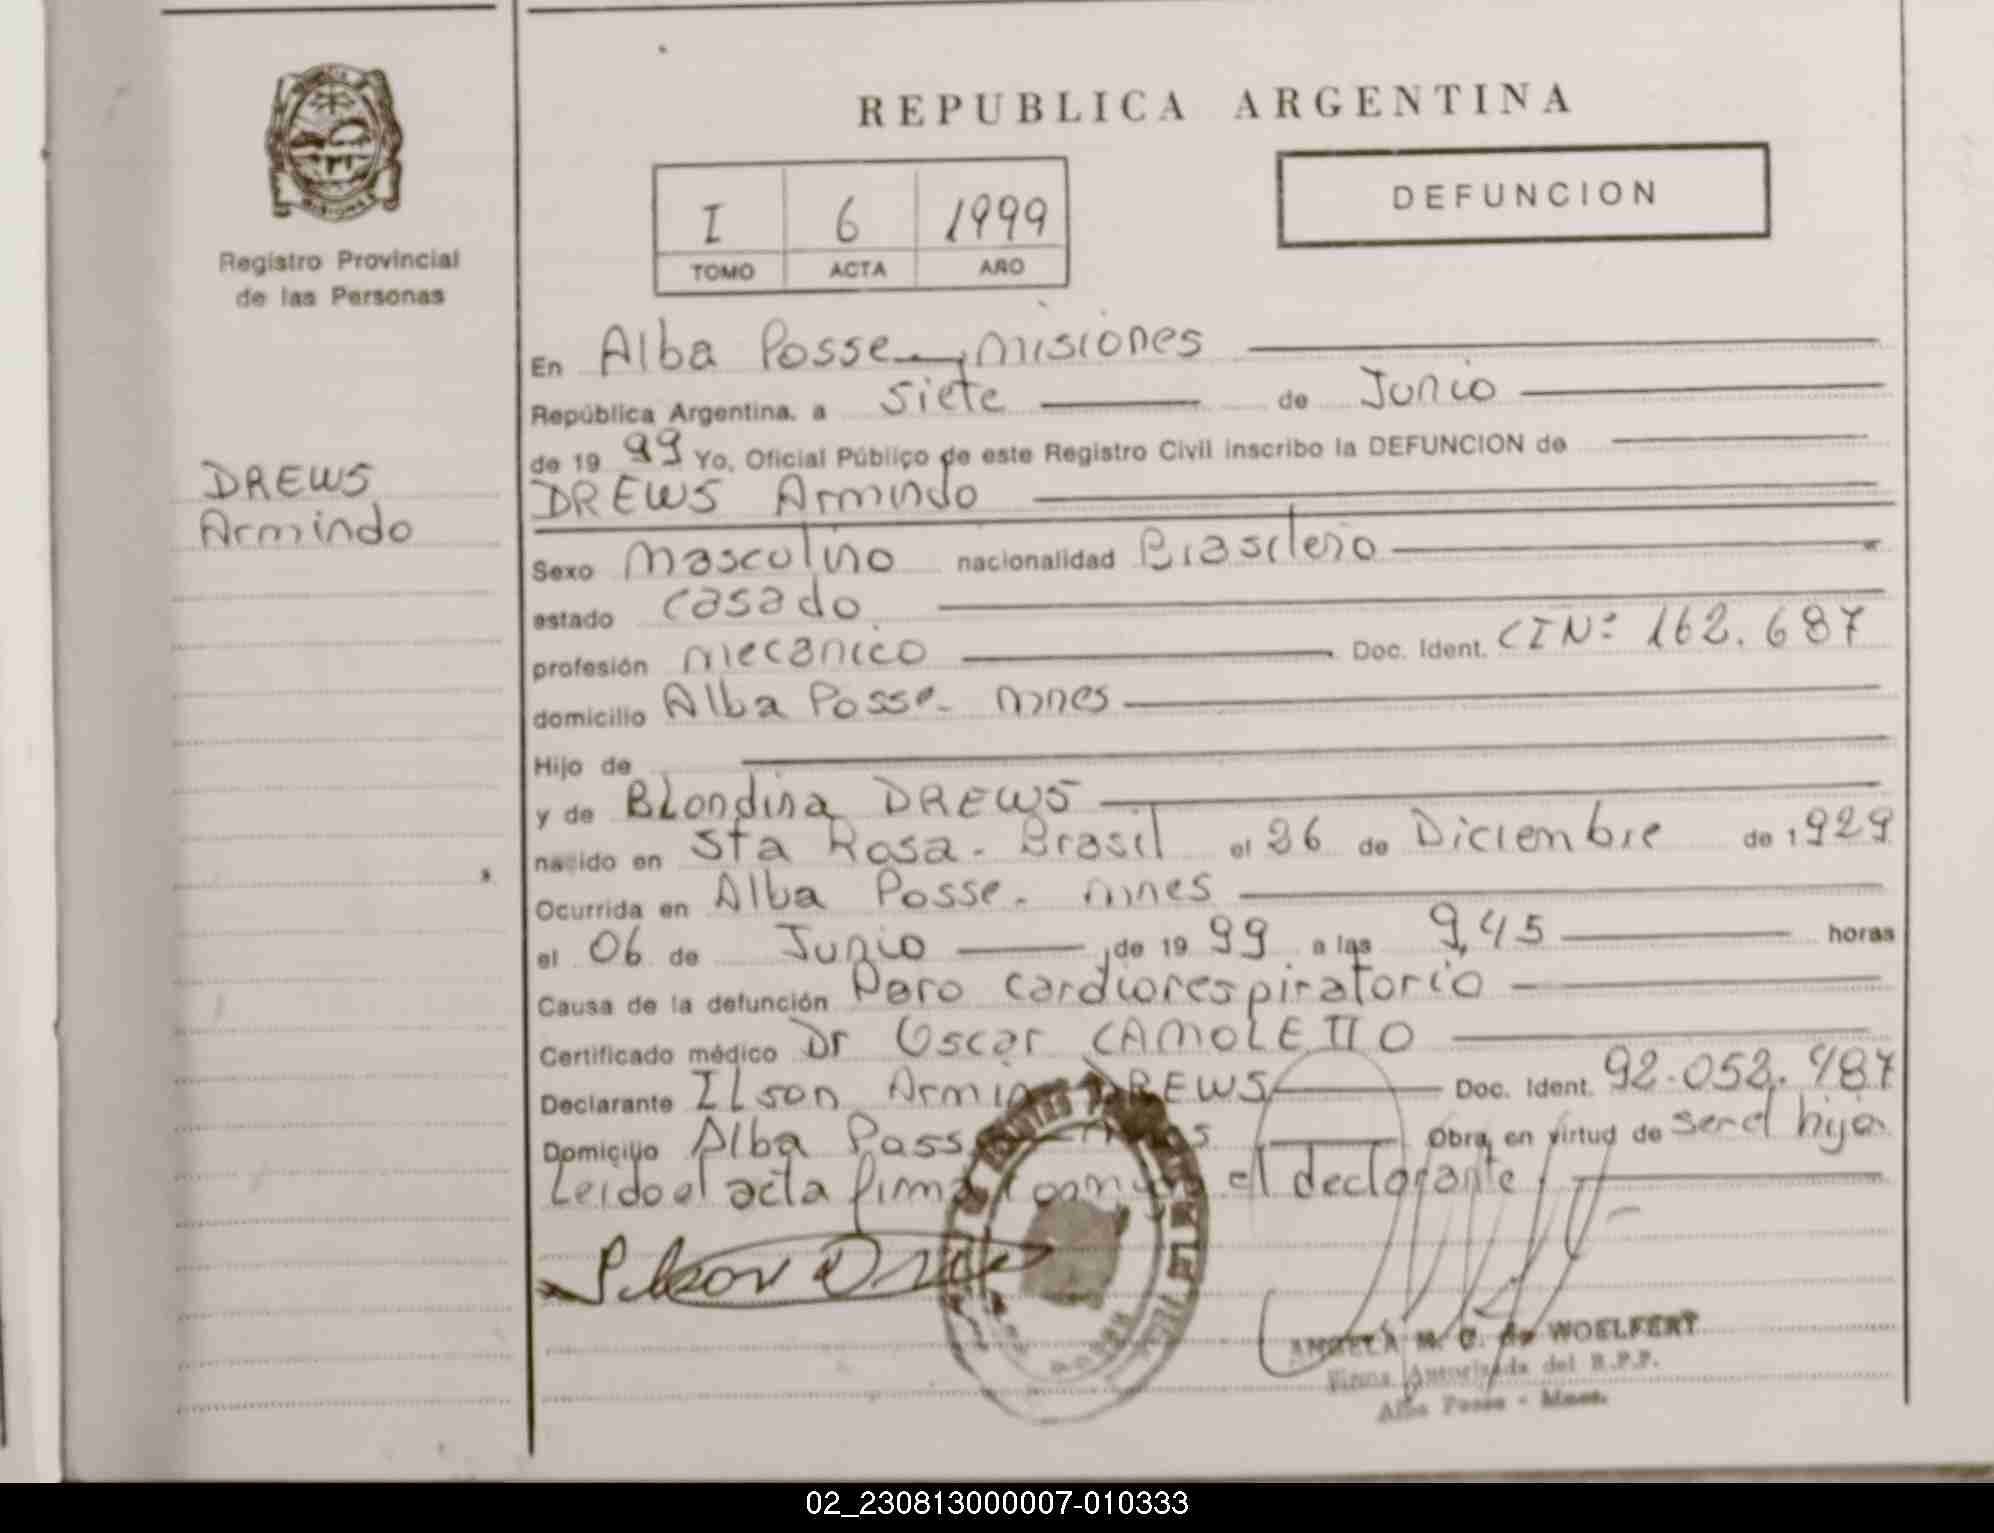 REPUBLICA ARGENTINA
DEFUNCION
I 6 1999
TOMO ACTA AÑO
Registro Provincial
de las Personas
DREWS
Armindo
En Alba Posse, misiones
República Argentina, a siete de Junio
de 1999 Yo, Oficial Público de este Registro Civil inscribo la DEFUNCION de
DREWS Armindo
Sexo masculino nacionalidad Brasilero
estado casado
profesión mecánico Doc. Ident. CI Nº 162.687
domicilio Alba Posse - mnes
Hijo de
y de Blondina DREWS
nacido en Sta Rosa - Brasil el 26 de Diciembre de 1929
Ocurrida en Alba Posse - mnes
el 06 de Junio de 1999 a las 9,45 horas
Causa de la defunción Paro cardiorespiratorio
Certificado médico Dr Oscar CAMOLETTO
Declarante Ilson Armin DREWS Doc. Ident. 92.052.487
Domicilio Alba Poss Obra, en virtud de ser el hijo
Leido el acta firma el declarante
Ilson Drews
ANGELA M. C. de WOELFERT
Firma Autorizada del R.P.P.
Alba Posse - Mnes.
02_230813000007-010333